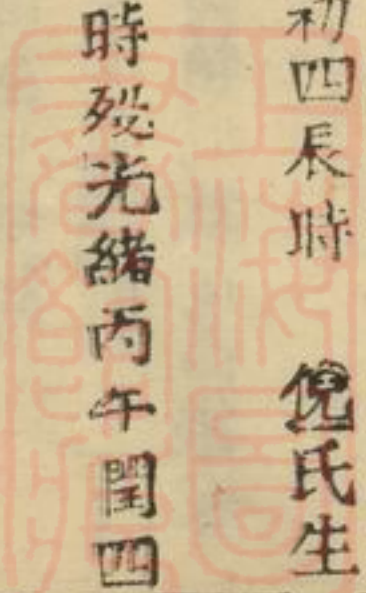 初四辰時　倪氏生
時殁光緒丙午閏四